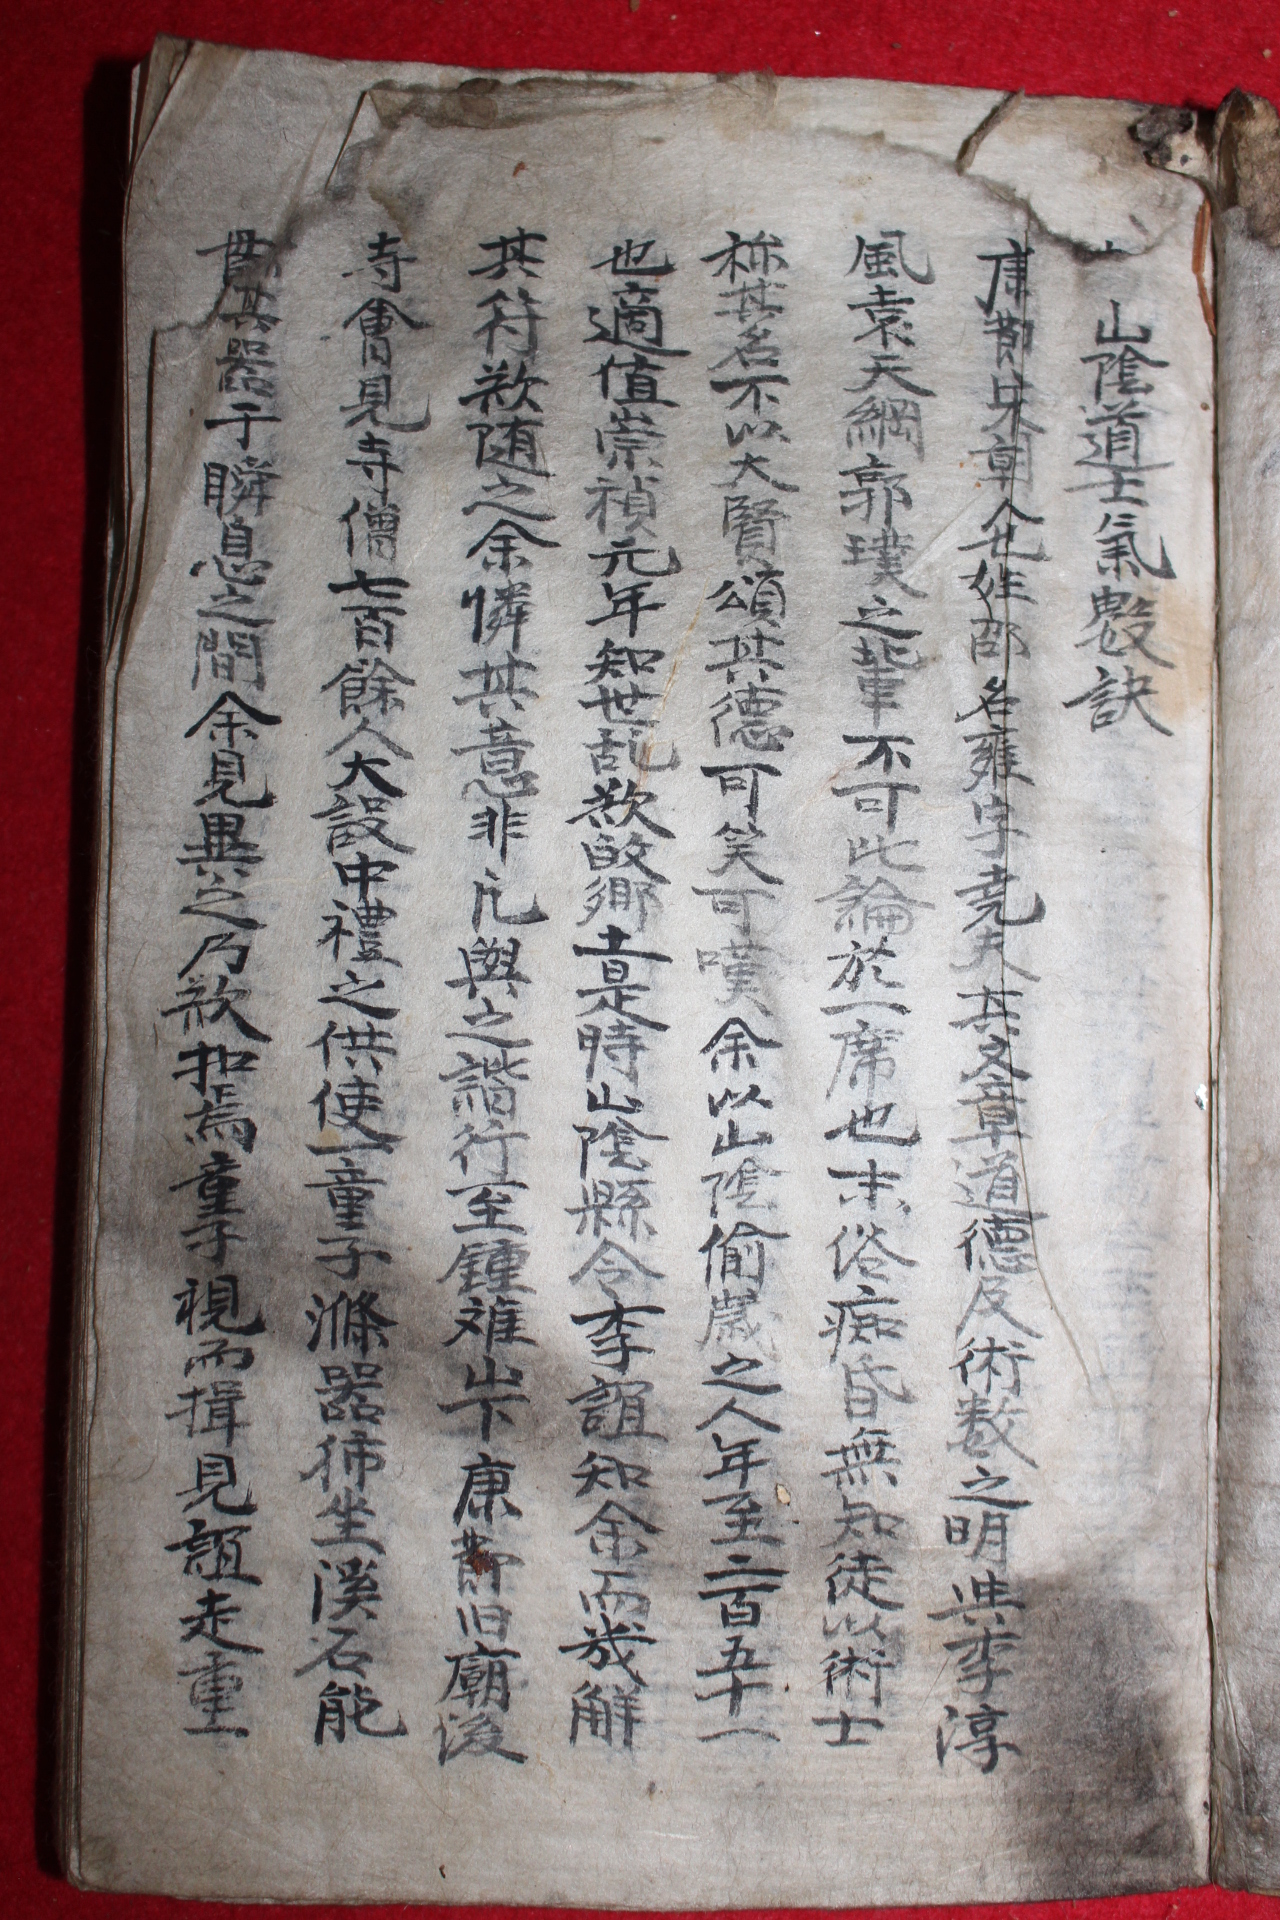 山陰道士氣數訣
康節宋朝人也姓邵名雍字堯夫其文章道德及術数之明與李淳
風袁天綱郭璞之輩不可比論於一席也末俗痴昏無知徒以術士
称其名不以大賢頌其德可笑可嘆余以山陰偷歲之人年至二百五十一
也適值崇禎元年知世乱欲故鄉土是時山陰縣令李誼知余而幾解
其符欲随之余憐其意非凡與之諧行至鍾难山下康節旧廟後
寺會見寺僧七百餘人大設中禮之供使一童子滌器㧊坐溪石能
其器于瞬息之間余見異之乃欲扣焉童子視而揖見誼走重一